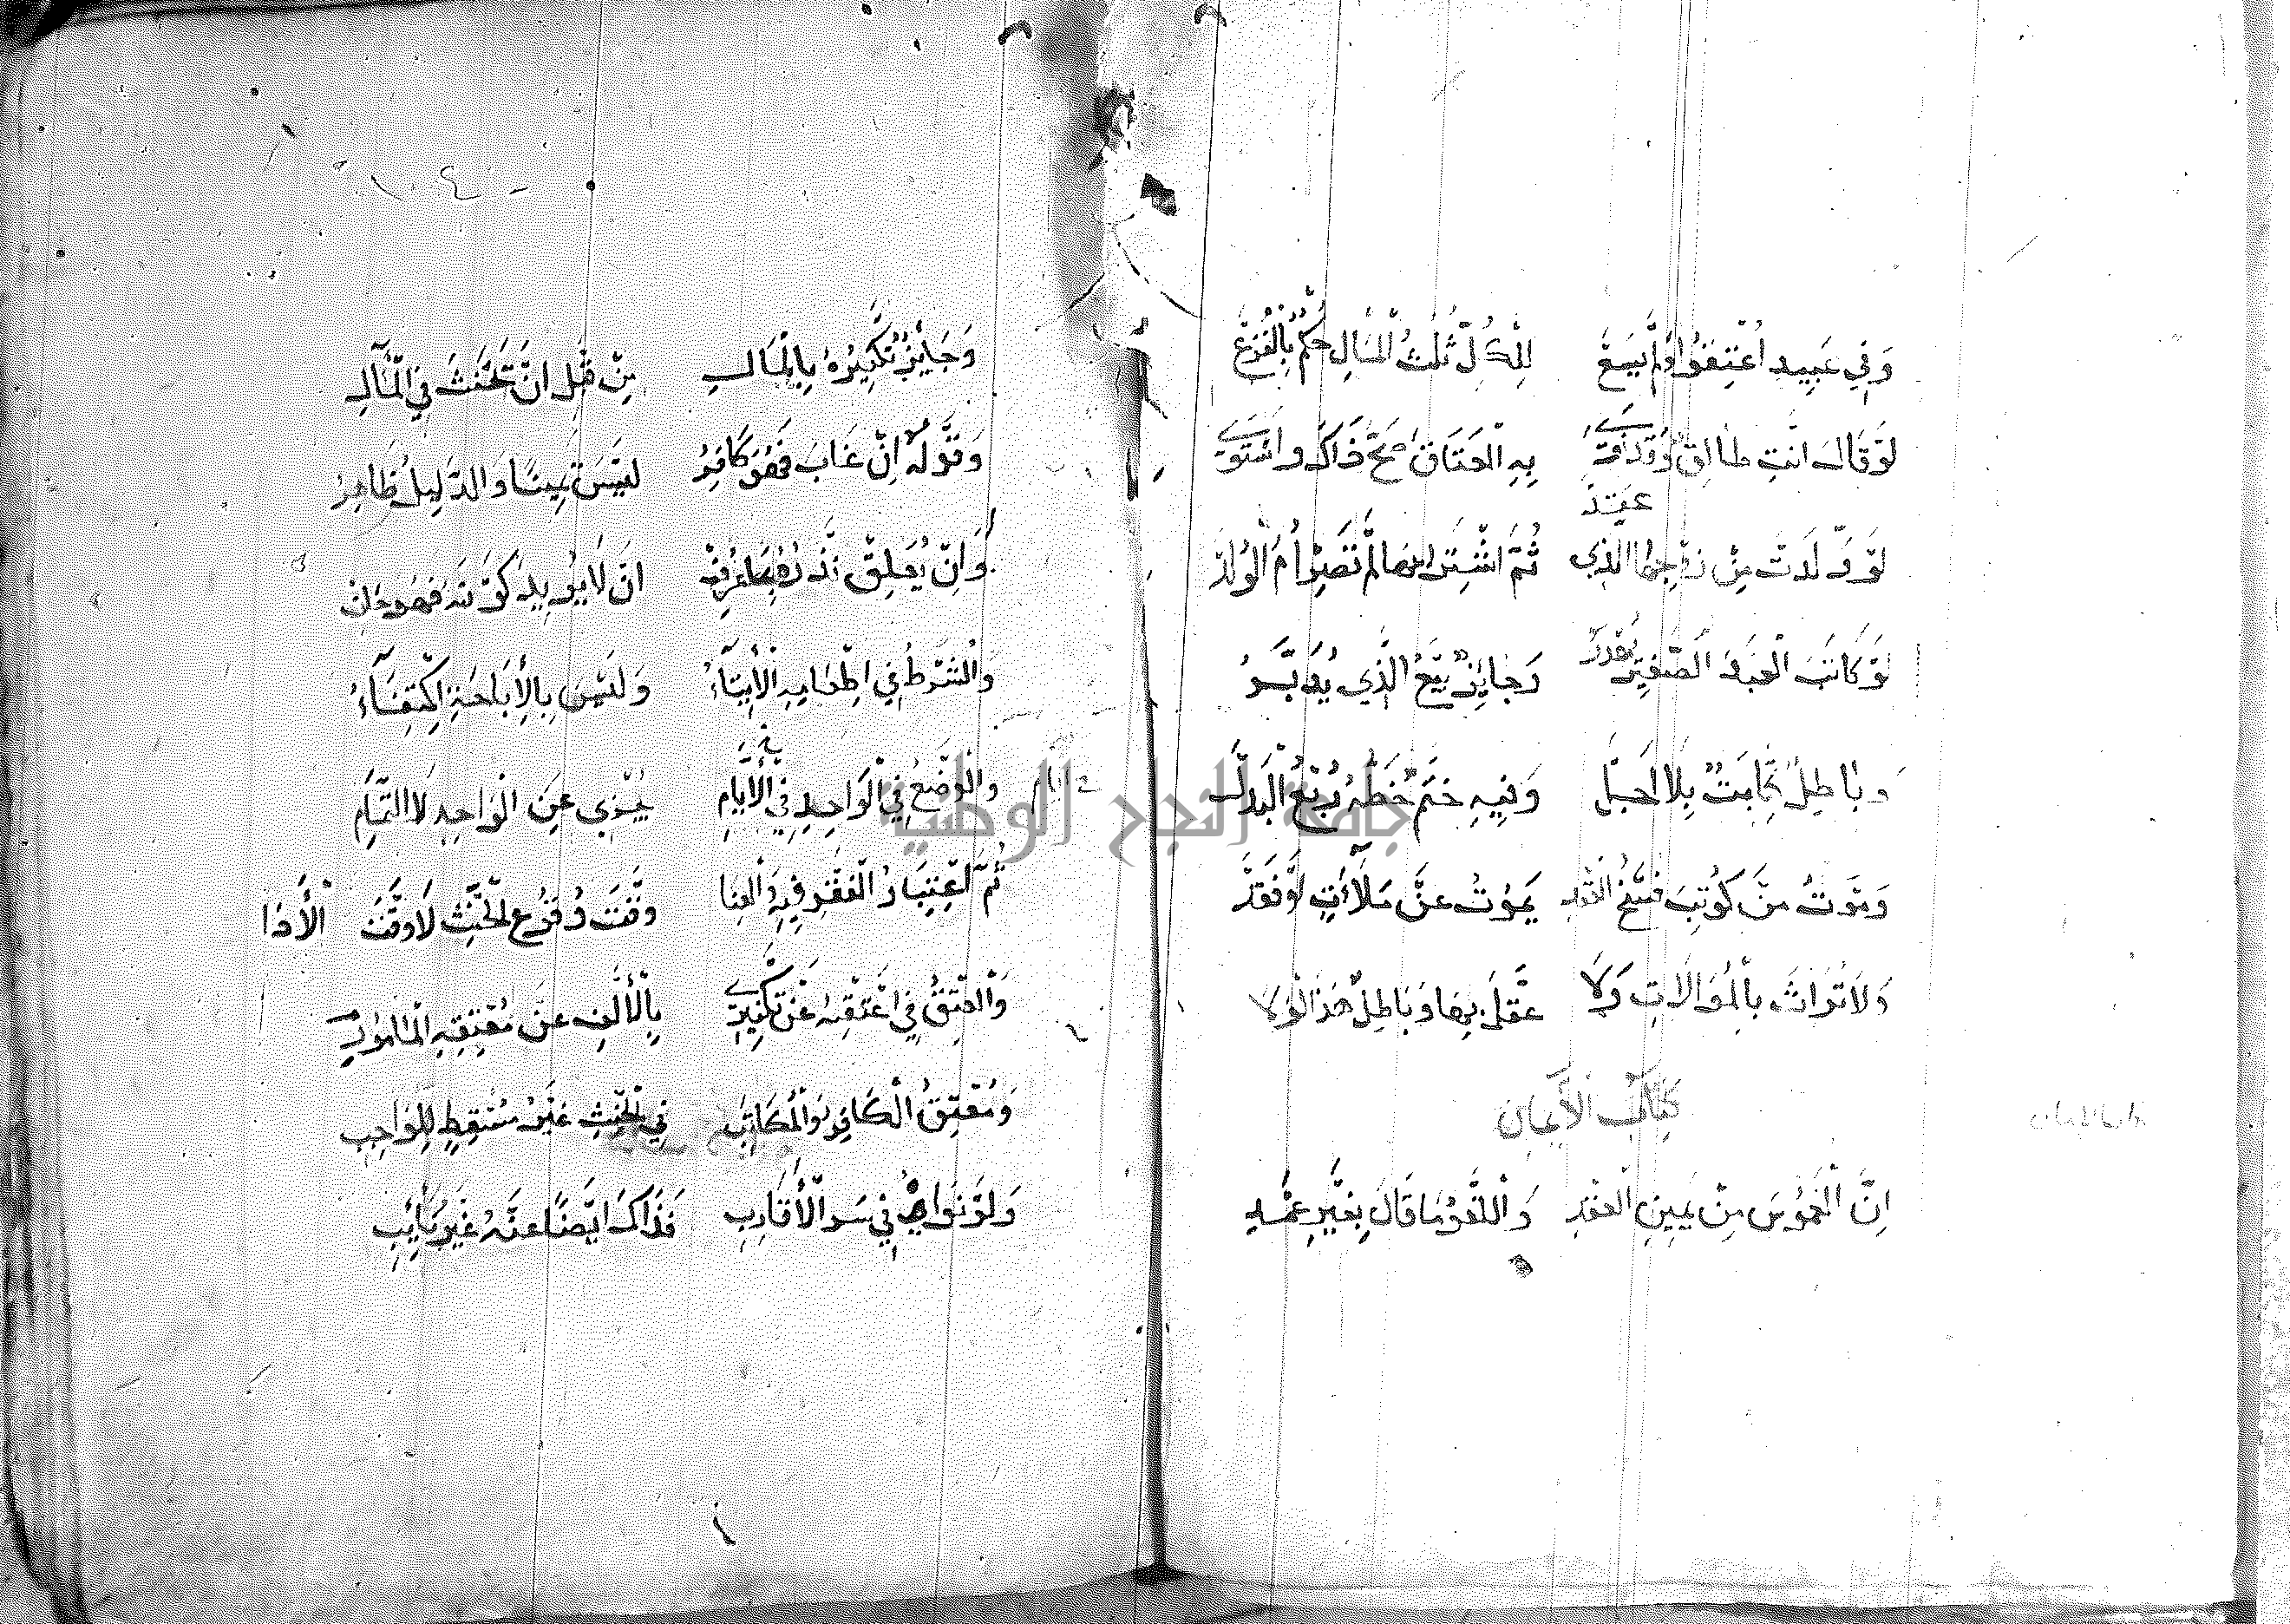 وَفِي عَبِيدٍ اُعْتِقُوا وَلَمْ يَسَعْ لِلْكُلِّ ثُلْثُ الْمَالِ حُكْمٌ بِالْقُرَعْ
لَوْ قَالَ اَنْتِ طَالِقٌ بِهِ الْعَتَاقَ صَحَّ ذَاكَ وَاسْتَوَى
عِنْدَ
لَوْ وَلَدَتْ مِنْ زَوْجِهَا الَّذِي ثُمَّ اشْتَرَاهَا لَمْ تَصِرْ اُمَّ الْوَلَدْ
لَوْ كَاتَبَ الْعَبْدَ الصَّغِيرَ يُهْدَرُ وَجَائِزٌ بَيْعُ الَّذِي يُدَبَّرُ
وَبَاطِلٌ كِتَابَةٌ بِلَا اَجَلْ وَفِيهِ حَتْمٌ حَطُّهُ رُبْعُ الْبَدَلْ
وَمَوْتُ مَنْ كُوتِبَ فَسْخُ الْعَقْدِ يَمُوتُ عَنْ مَلَاءَةٍ اَوْ فَقْدِ
وَلَا تَوَارُثَ بِالْمُوَالَاتِ وَلَا عَقْلَ بِهَا وَبَاطِلٌ هَذَا الْوَلَا
كِتَابُ الْاَيْمَانِ
اِنَّ الْغَمُوسَ مِنْ يَمِينِ الْعَقْدِ وَاللَّغْوُ مَا قَالَ بِغَيْرِ عَمْدِ
١٤٠
وَجَائِزٌ تَكْفِيرُهُ بِالْمَالِ مِنْ قَبْلِ اَنْ تَحْنَثَ فِي الْمَآلِ
وَقَوْلُهُ اِنْ غَابَ فَهُوَ كَافِرُ لَيْسَ يَمِينًا وَالدَّلِيلُ ظَاهِرُ
وَاِنْ يُعَلِّقْ نَذْرَهُ اَنْ لَا يُرِيدَ كَوْنَهُ فَهُوَ
وَالشَّرْطُ فِي اِطْعَامِهِ الْاِيتَاءُ وَلَيْسَ بِالْاِبَاحَةِ اكْتِفَاءُ
وَالْوَضْعُ فِي الْوَاحِدِ فِي الْاَيَّامِ يُجْزِي عَنِ الْوَاحِدِ لَا التَّمَامِ
ثُمَّ اعْتِبَارُ الْفَقْرِ فِيهِ وَالْغِنَا وَقْتَ وُقُوعِ الْحِنْثِ لَا وَقْتَ الْاَدَا
وَالْعِتْقُ فِي اَعْتَقَهُ عَنْ تَكْفِيرِي بِالْاَلْفِ عَنْ مُعْتِقِهِ الْمَأْمُورِ
وَمُعْتِقُ الْكَافِرِ وَالْمُكَاتَبِ فِي الْحِنْثِ غَيْرُ مُسْقِطٍ لِلْوَاجِبِ
وَلَوْ نَوَاهُ فِي شِرَا الْاَقَارِبِ فَذَاكَ اَيْضًا عَنْهُ غَيْرُ نَائِبِ
جامعة النجاح الوطنية